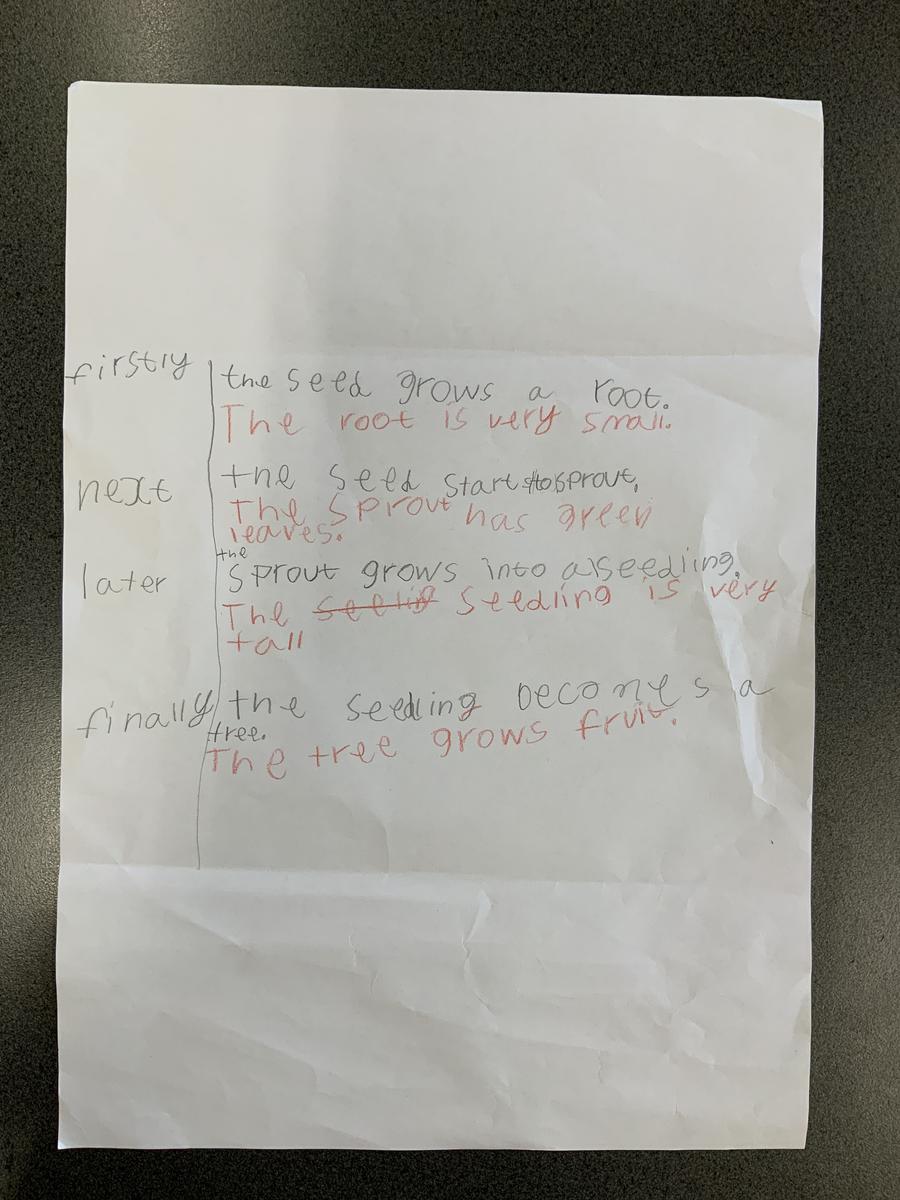 firstly the seed grows a root.
The root is very small.
next the seed starts to sprout,
The sprout has green
leaves.
the
later sprout grows into a seedling.
The seedling is very
tall
finally the seedling becomes a
tree.
The tree grows fruit.